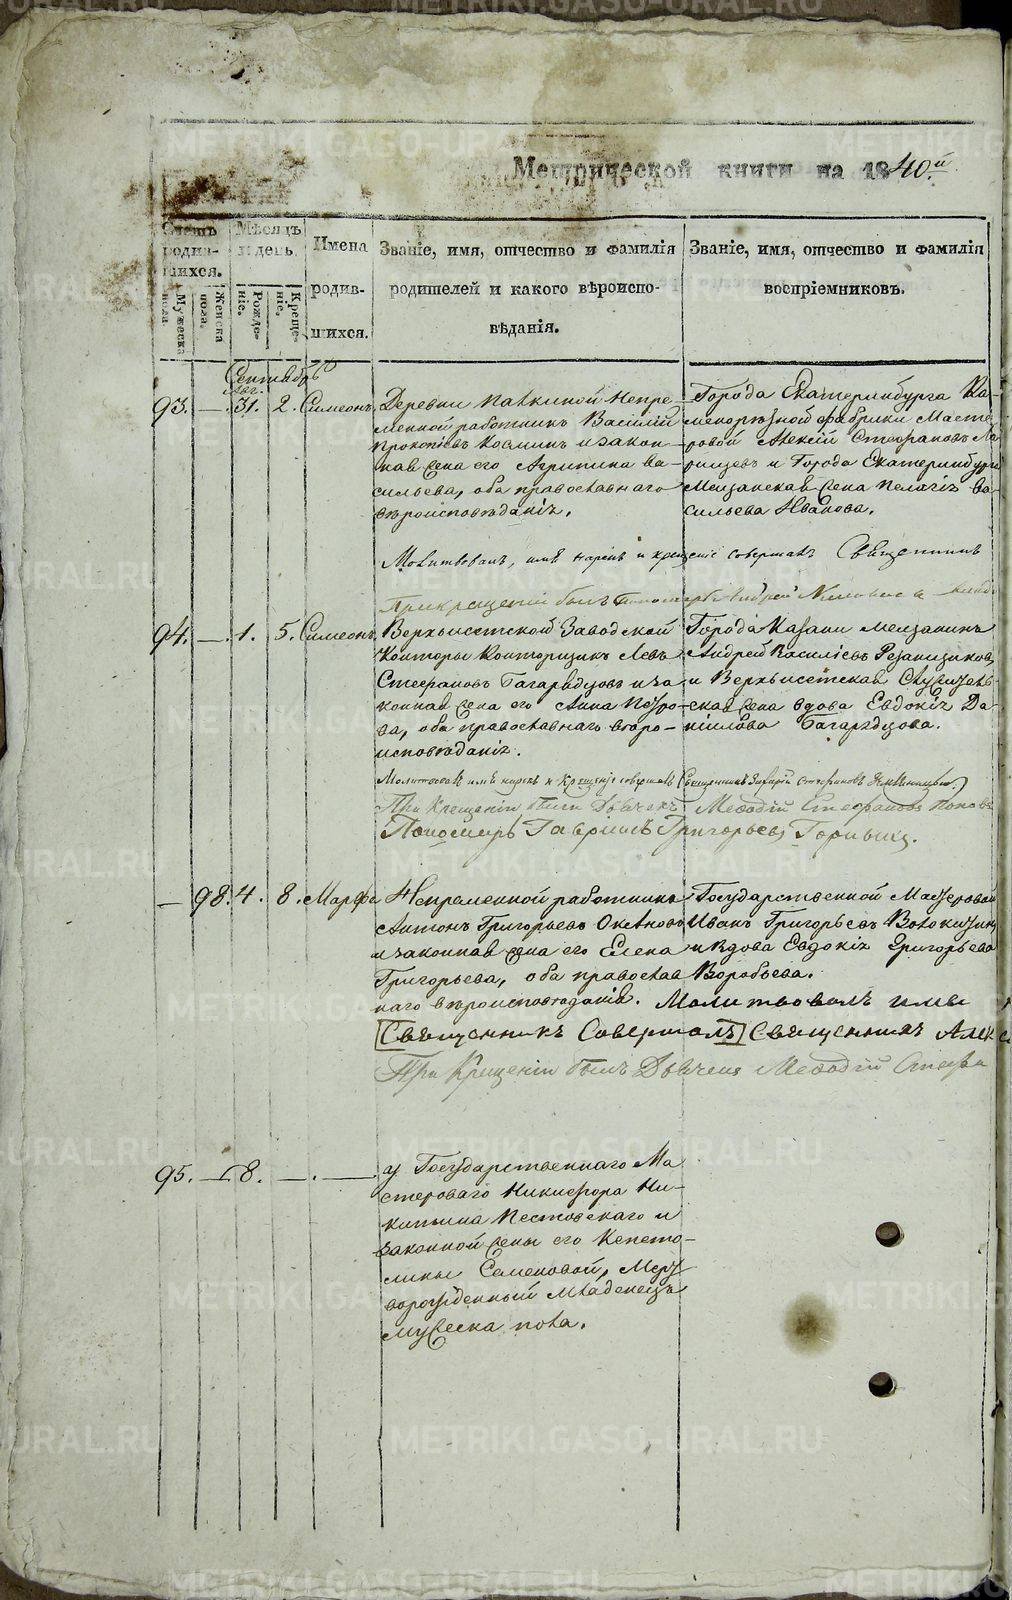 Метрической книги на 1840й.
Счетъ родившихся.
Мужеска пола.
Женска пола.
Мѣсяцъ и день.
Рожденіе.
Крещеніе.
Имена родившихся.
Званіе, имя, отчество и фамилія родителей и какого вѣроисповѣданія.
Званіе, имя, отчество и фамилія воспріемниковъ.
Сентябрь
93. — Авг. 31. 2. Симеонъ
Деревни Палкиной Непре-
менной работникъ Василій
Прокопіевъ Косминъ и закон-
ная жена его Агрипина Ва-
сильева, оба православнаго
вѣроисповѣданія.
Города Екатеринбурга Ка-
менорѣзной фабрики Масте-
ровой Алексій Стефановъ
и Города Екатеринбурга
Мещанская жена Пелагія Ва-
сильева Иванова.
Молитвовалъ, имя нарекъ и крещеніе совершалъ Священникъ
При крещеніи былъ Пономарь Андрей
94. — 1. 5. Симеонъ
Верхъисетской Заводской
Конторы Конторщикъ Левъ
Стефановъ Багарядцовъ и за-
конная жена его Анна Петро-
ва, оба православнаго вѣро-
исповѣданія.
Города Казани мещанинъ
Андрей Василіевъ Рѣзанщиковъ
и Верхъисетская Служитель-
ская жена вдова Евдокія Да-
ніилова Багарядцова.
Молитвовалъ имя нарекъ и Крещеніе совершалъ Священникъ Захарій Стефановъ
При Крещеніи были Дьячекъ Меѳодій Стефановъ Поповъ
Пономарь Гавріилъ Григорьевъ Горныхъ.
— 98. 4. 8. Марфа
Непременной работникъ
Антонъ Григорьевъ
и законная жена его Елена
Григорьева, оба православ
наго вѣроисповѣданія.
Государственной Мастеровой
Иванъ Григорьевъ
и Вдова Евдокія Григорьева
Воробьева.
Молитвовалъ имя
[Священникъ Совершалъ] Священникъ Алек
При Крещеніи былъ Дьячекъ Меѳодій Стефа
95. — 8. — . —
У Государственнаго Ма
стероваго Никифора Ни-
китина Пестовскаго и
законной жены его Капето-
лины Семеновой, Мерт
ворожденный Младенецъ
мужеска пола.
METRIKI.GASO-URAL.RU